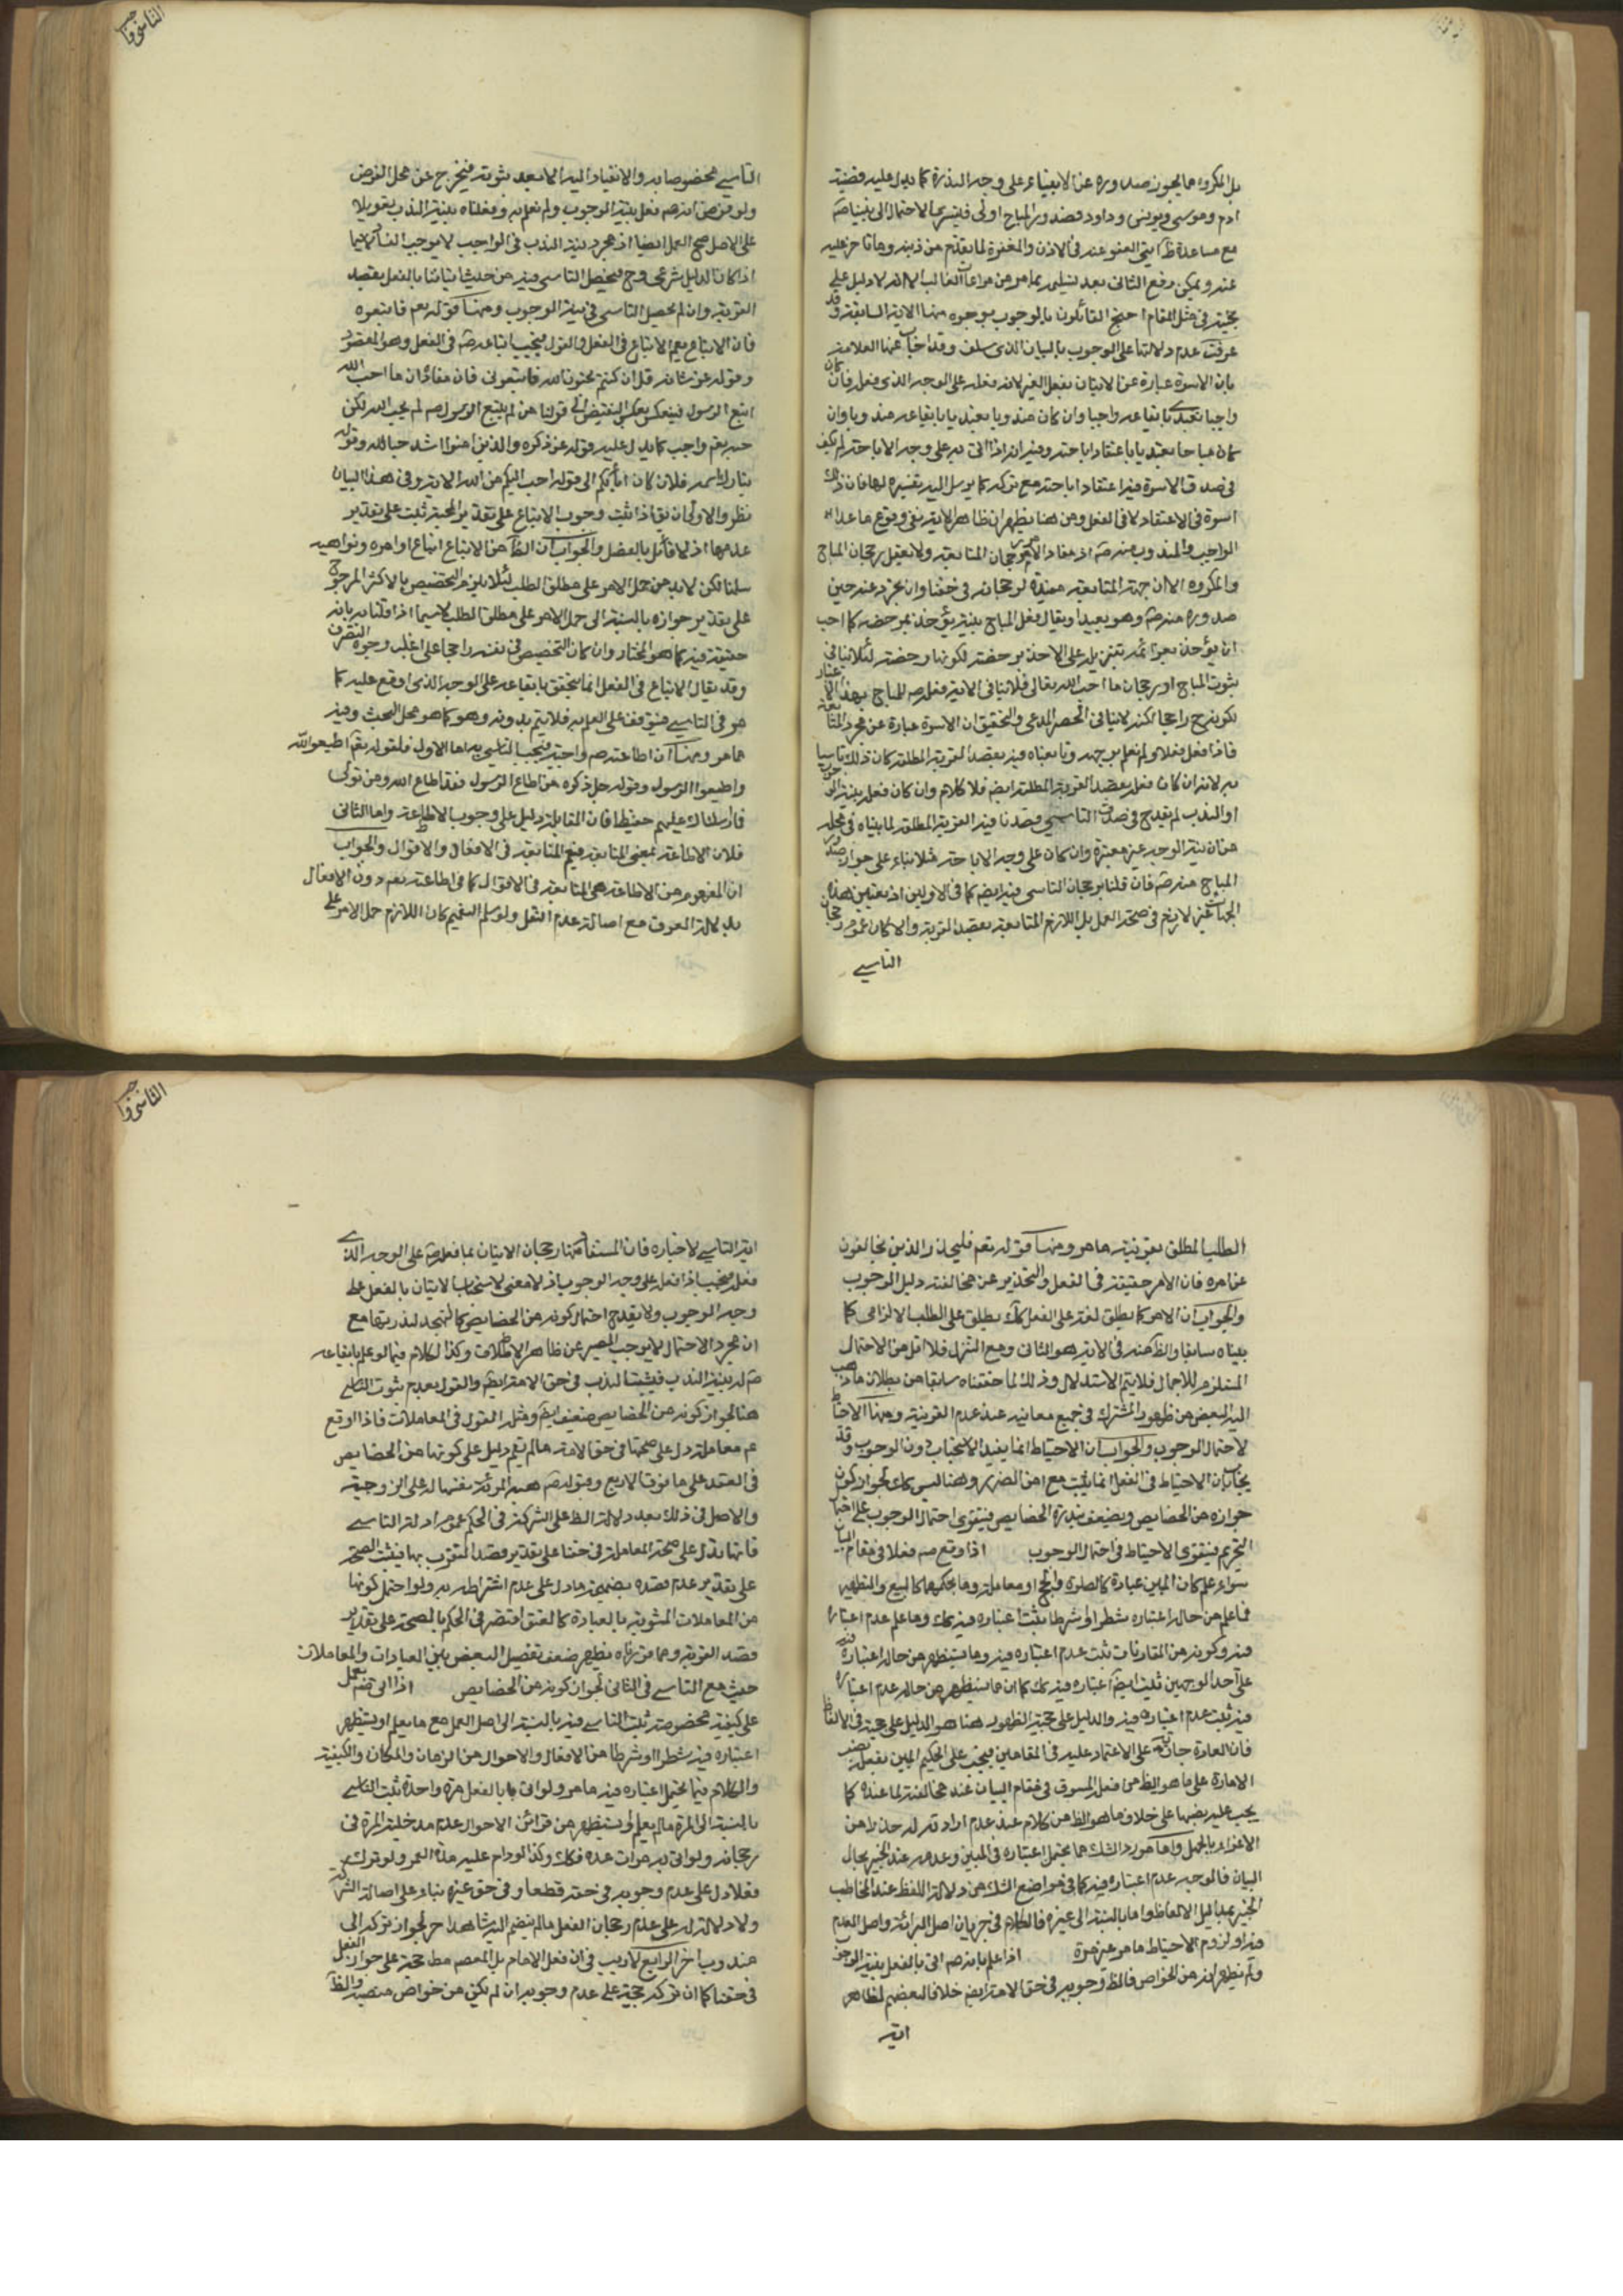 بل المكروه مما يجوز صدوره عن الانبياء على وجه الندرة كما يدل عليه قضية
ادم وموسى ويونس وداود فصدور المباح اولى فليسر بها الاحتمال الى نبينا صم
مع مساعدة ظ ايتى العفو عنه في الاذن والمغفرة لما تقدم من ذنبه وما تاخر عليه
عنه ويمكن دفع الثانى بعد تسليمه بما مر من مراعات الغالب الا انه لا دليل على
حجيته في مثل المقام احتج القائلون بالوجوب بوجوه منها الاية السابقة وقد
عرفت عدم دلالتها على الوجوب بالبيان الذى سلف وقد اجاب عنها العلامة
بان الاسوة عبارة عن الاتيان بفعل الغير لانه فعله على الوجه الذى فعله فان كان
واجبا تعبدنا بايقاعه واجبا وان كان مندوبا تعبدنا بايقاعه مندوبا وان
كان مباحا تعبدنا باعتقاد اباحته وفيه انه اذا اتى به على وجه الاباحة لم يكف
في صدق الاسوة فيه اعتقاد اباحته مع تركه كما يرسل اليه تفسيره لها فان ذلك
اسوة في الاعتقاد لا في الفعل ومن هنا يظهر ان ظاهر الاية ينفى وقوع ما عدا
الواجب والمندوب منه صم اذ مفاد الاية رجحان المتابعة ولا يعقل رجحان المباح
والمكروه الا ان جهة المتابعة مفيدة لرجحانه في حقنا وان تجرد عنه حين
صدوره منه صم وهو بعيد او يقال فعل المباح بنية يؤخذ برخصه كما احب
ان يؤخذ بعزائمه بتنزيله على الاخذ برخصة لكونها رخصة لئلا ينافى
ثبوت المباح او برجحان ما احب الله تعالى فلا ينافى الاية فعله صم للمباح بهذا الاعتبار
لكونه ح راجحا لكنه لا ينافى الحصر المدعى والتحقيق ان الاسوة عبارة عن مجرد المتابعة
فاذا فعل فعلا ولم نعلم وجهه وتابعناه فيه بقصد القربة المطلقة كان ذلك تاسيا
به لانه ان كان فعله بقصد القربة المطلقة ايضا فلا كلام وان كان فعله بنية الوجوب
او الندب لم يقدح في صدق التاسي قصدنا فيه القربة المطلقة لما بيناه في محله
من ان نية الوجه غير معتبرة وان كان على وجه الاباحة مثلا بناء على جواز صدور
المباح منه صم فان قلنا برجحان التاسى فيه ايضا كما في الاولين اذ تعيين هذه
الجهات غير لازم في صحة العمل بل اللازم المتابعة بقصد القربة والا كان عموم رجحان
التاسي
التاسي مخصوصا به والانقياد اليه الا بعد ثبوته فيخرج عن محل الفرض
ولو فرض انه صم فعل بنية الوجوب ولم نعلم به وفعلناه بنية الندب تعويلا
على الاصل صح العمل ايضا اذ مجرد نية الندب في الواجب لا يوجب الفساد لا سيما
اذا كان الدليل شرعى وح فيحصل التاسى فيه من حيث اتياننا بالفعل بقصد
القربة وان لم يحصل التاسى في نية الوجوب ومنها قوله تعم فاتبعوه
فان الاتباع يعم الاتباع في الفعل والقول فيجب اتباعه صم في الفعل وهو المقصود
وقوله عز شانه قل ان كنتم تحبون الله فاتبعونى فان مفاده ان ما احب الله
اتبع الرسول فينعكس بعكس النقيض الى قولنا من لم يتبع الرسول صم لم يحب الله لكن
حبه تعم واجب كما يدل عليه قوله عز ذكره والذين امنوا اشد حبا لله وقوله
تبارك اسمه قل ان كان اباؤكم الى قوله احب اليكم من الله الاية وفى هذا البيان
نظر والاولى ان يق اذا ثبت وجوب الاتباع على تقدير المحبة ثبت على تقدير
عدمها اذ لا قائل بالفصل والجواب ان الظ من الاتباع اتباع اوامره ونواهيه
سلمنا لكن لا بد من حمل الامر على مطلق الطلب لئلا يلزم التخصيص بالاكثر المرجوح
على تقدير جوازه بالنسبة الى حمل الامر على مطلق الطلب لا سيما اذا قلنا بانه
حقيقة فيه كما هو المختار وان كان التخصيص في نفسه راجحا على اغلب وجوه التصرف
وقد يقال الاتباع في الفعل انما يتحقق بايقاعه على الوجه الذى اوقع عليه كما
مر في التاسي فيتوقف على العلم به فلا يتم بدونه وهو كما هو محل البحث وفيه
ما مر ومنها ان اطاعته صم واجبة فيجب التاسي به اما الاول فلقوله تعم اطيعوا الله
واطيعوا الرسول وقوله جل ذكره من اطاع الرسول فقد اطاع الله ومن تولى
فما ارسلناك عليهم حفيظا فان المقابلة دليل على وجوب الاطاعة واما الثانى
فلان الاطاعة بمعنى المتابعة فيعم المتابعة في الافعال والاقوال والجواب
ان المفهوم من الاطاعة هى المتابعة في الاقوال كما في اطاعته تعم دون الافعال
بدلالة العرف مع اصالة عدم النقل ولو سلم التعميم كان اللازم حمل الامر على
الطلب المطلق بقرينة ما مر ومنها قوله تعم فليحذر الذين يخالفون
عن امره فان الامر حقيقة في الفعل والتحذير عن مخالفته دليل الوجوب
والجواب ان الامر كما يطلق لغة على الفعل كك يطلق على الطلب الالزامى كما
بيناه سابقا والظ منه في الاية هو الثانى ومع التنزل فلا اقل من الاحتمال
المستلزم للاجمال فلا يتم الاستدلال وذلك لما حققناه سابقا من بطلان ما ذهب
اليه البعض من ظهور المشترك في جميع معانيه عند عدم القرينة ومنها الاحتياط
لاحتمال الوجوب والجواب ان الاحتياط انما يفيد الاستحباب دون الوجوب وقد
يجاب بان الاحتياط في الفعل انما يثبت مع امن الضرر وهنا ليس كك لجواز كون
جوازه من الخصايص ويضعف بندرة الخصايص فيتقوى احتمال الوجوب على احتمال
التحريم فيتقوى الاحتياط في احتمال الوجوب اذا وقع منه فعلا في مقام البيان
سواء علم كان المبين عبادة كالصلوة والحج او معاملة وما بحكمهما كالبيع والتطهير
فما علم من حاله اعتباره شطرا او شرطا يثبت اعتباره فيه كك وما علم عدم اعتباره
فيه وكونه من المقارنات ثبت عدم اعتباره فيه وما يستظهر من حاله اعتباره فيه
على احد الوجهين ثبت ايضا اعتباره فيه كك كما ان ما يستظهر من حاله عدم اعتباره
فيه ثبت عدم اعتباره فيه والدليل على حجية الظهور هنا هو الدليل على حجيته في الالفاظ
فان العادة جارية على الاعتماد عليه في المقامين فيجب على الحكيم المبين بفعله نصب
الامارة على ما هو الظ من فعله المسوق في مقام البيان عند مخالفته لما عنده كما
يجب عليه نصبها على خلاف ما هو الظ من كلامه عند عدم ارادته له حذرا من
الاغراء بالجهل واما مورد الشك مما يحتمل اعتباره في المبين وعدمه عند الخبير بحال
البيان فالوجه عدم اعتباره فيه كما في مواضع الشك من دلالة اللفظ عند المخاطب
الخبير بمداليل الالفاظ واما بالنسبة الى غيره فالكلام في جريان اصل البرائة واصل العدم
فيه او لزوم الاحتياط ما مر غير مرة اذا علم بانه صم اتى بالفعل بنية الوجوب
ولم يظهر انه من الخواص فالظ وجوبه في حق الامة ايضا خلافا لبعضهم لظاهر
اية
اية التاسي لاخباره فان المستفاد منها رجحان الاتيان بما فعله صم على الوجه الذى
فعله فيجب اذا فعله على وجه الوجوب اذ لا معنى لاستحباب الاتيان بالفعل على
وجه الوجوب ولا يقدح احتمال كونه من الخصايص كالتهجد لندرتها مع
ان مجرد الاحتمال لا يوجب المصير عن ظاهر الاطلاق وكذا الكلام فيما لو علم بايقاعه
صم له بنية الندب فيثبت الندب في حق الامة ايضا والقول بعدم ثبوت التاسي
هنا لجواز كونه من الخصايص ضعيف ايضا ومثله القول في المعاملات فاذا اوقع
عم معاملة دل على صحتها في حق الامة ما لم يقم دليل على كونها من الخصايص
في العقد على ما فوق الاربع وقبوله صم هبة المرئة نفسها له على الزوجية
والاصل في ذلك بعد دلالة الظ على الشركة في الحكم عموم ادلة التاسي
فانها تدل على صحة المعاملة في حقنا على تقدير قصد التقرب بها فيثبت الصحة
على تقدير عدم قصده بضميمة ما دل على عدم اشتراطه به ولو احتمل كونها
من المعاملات المشوبة بالعبادة كالعتق اقتصر في الحكم بالصحة على تقدير
قصد القربة ومما قررناه يظهر ضعف تفصيل البعض بين العبادات والمعاملات
حيث منع التاسي في الثانى لجواز كونه من الخصايص اذا اتى صم بعمل
على كيفية مخصوصة ثبت التاسي فيه بالنسبة الى اصل العمل مع ما يعلم او يستظهر
اعتباره فيه شطرا او شرطا من الافعال والاحوال من الزمان والمكان والكيفية
والكلام فيما يحتمل اعتباره فيه ما مر ولو اتى بالفعل مرة واحدة ثبت التاسي
بالنسبة الى المرة ما لم يعلم او يستظهر من قرائن الاحوال عدم مدخلية المرة في
رجحانه ولو اتى به مرات عدة فكك وكذا لو دام عليه مدة العمر ولو ترك صم
فعلا دل على عدم وجوبه في حقه قطعا وفى حق غيره بناء على اصالة الشركة
ولا دلالة له على عدم رجحان الفعل ما لم ينضم اليه شاهد اخر لجواز تركه الى
مندوب اخر الرابع لا ريب في ان فعل الامام بل المعصوم مط حجة على جواز الفعل
في حقنا كما ان تركه حجة على عدم وجوبه ان لم يكن من خواص منصبه والظ
التاسى واجب
التاسى واجب